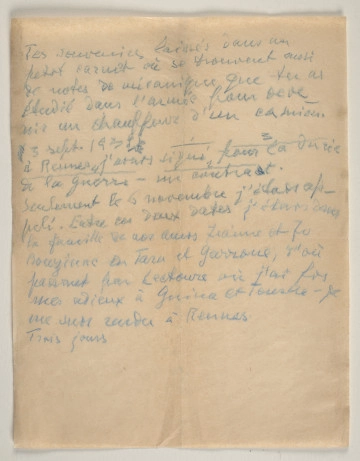 Tes souvenirs laissés dans un
petit carnet où se trouvent aussi
de notes de mécanique que tu as
étudié dans l'armée pour deve-
nir un chauffeur d'un camion
3 sept. 1939
à Rennes j'avais signé pour la durée
de la guerre - un contrat.
Seulement le 6 novembre j'étais ap-
pelé. Entre ces deux dates j'étais dans
la famille de nos amis et
en Tarn et Garonne, d'où
passant par Lectoure où j'ai fos
mes adieux à et - je
me suis rendu à Rennes
Trois jours